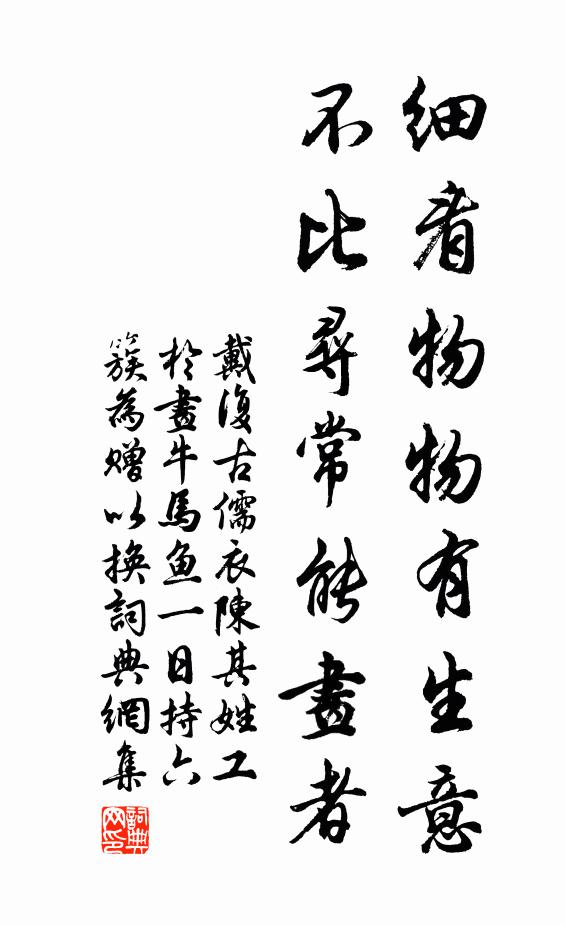 細看物物有生意
不比尋常能畫者
戴復古儒衣陳其姓工
於畫牛馬魚一日持六
簇為贈以換詞典網集
詞典网印